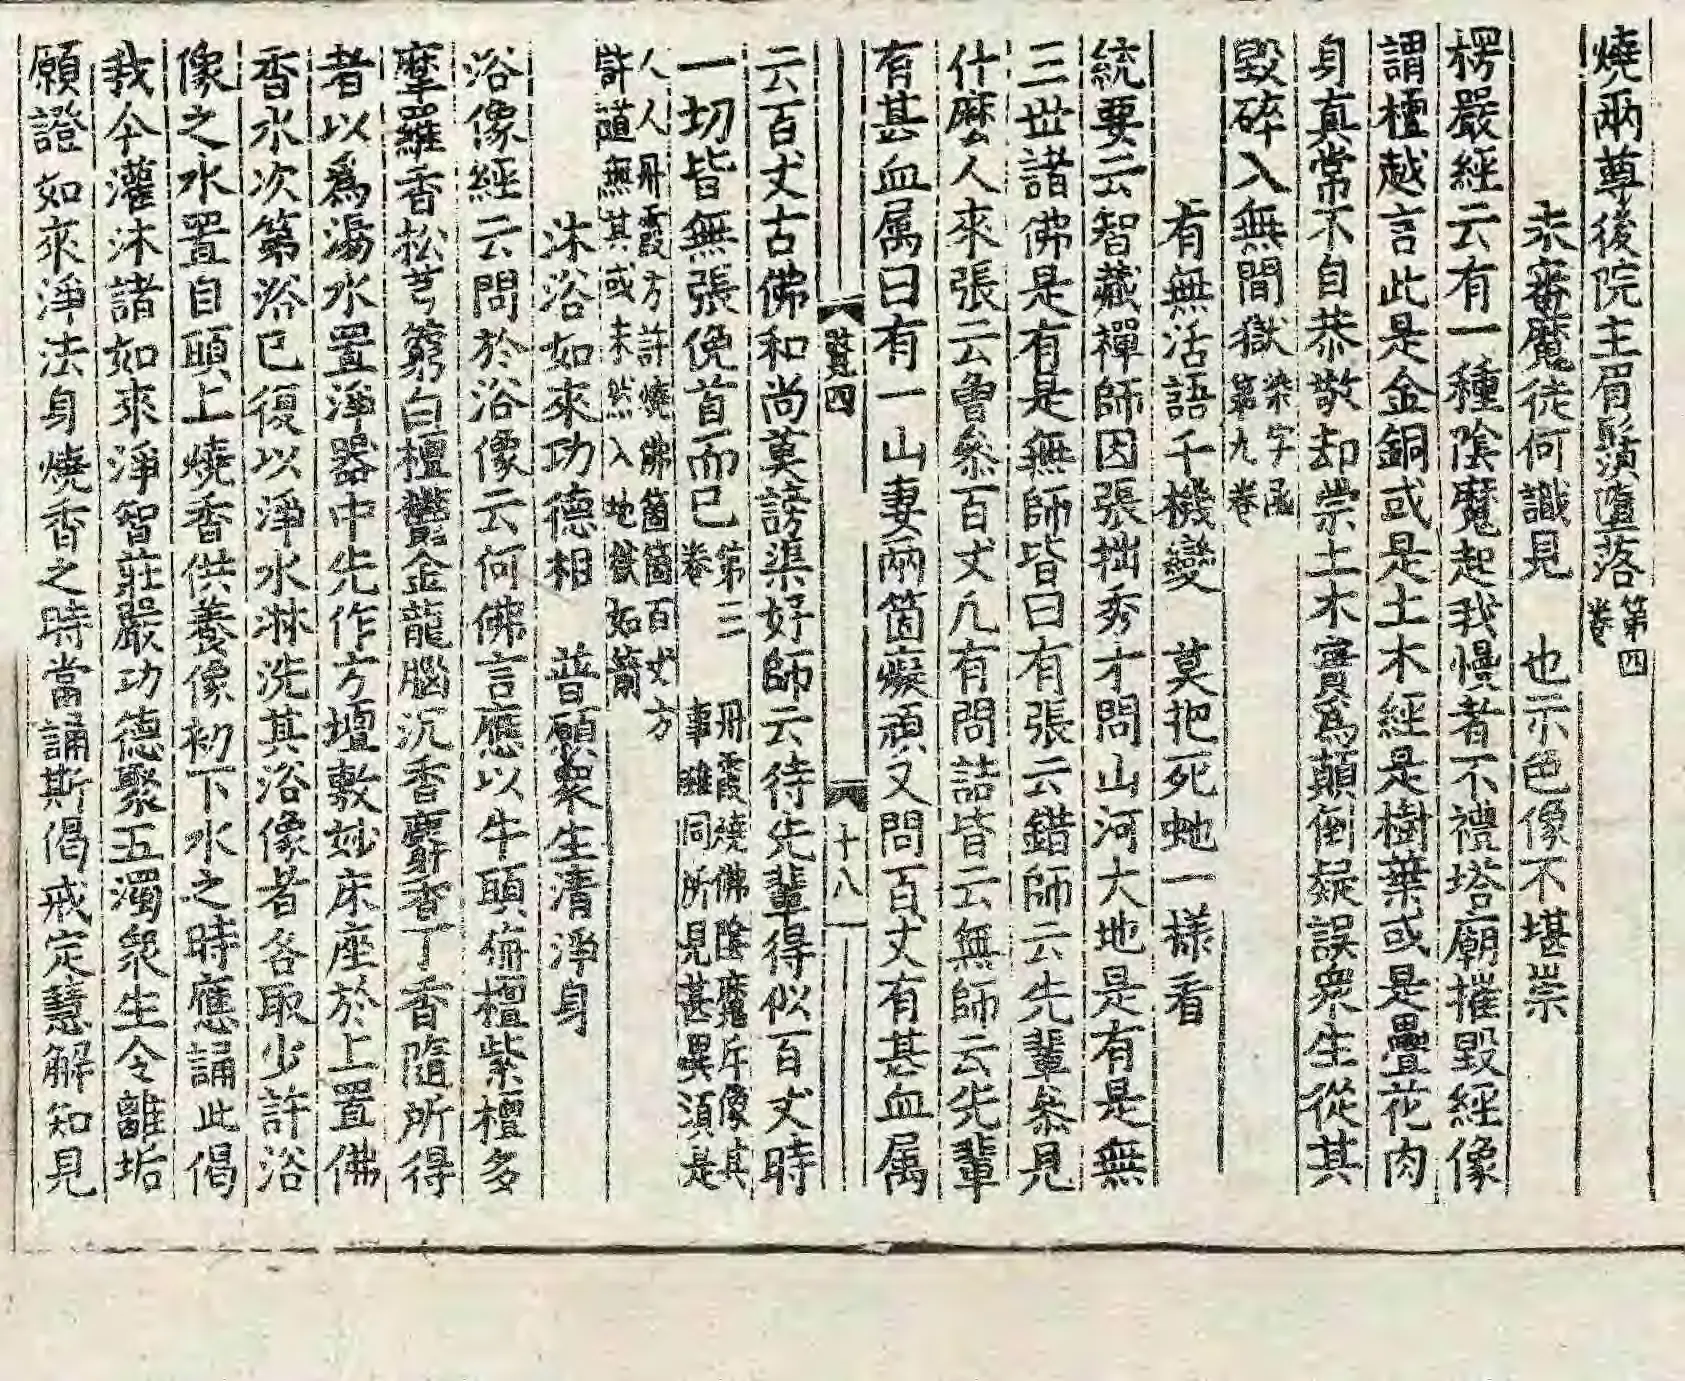 燒兩尊後院主眉鬚墮落第四卷
未審魔徒何識見　也示色像不堪崇
楞嚴經云有一種陰魔起我慢者不禮塔廟摧毀經像
謂檀越言此是金銅或是土木經是樹葉或是疊花肉
身真常不自恭敬却崇土木實爲顛倒疑誤衆生從其
毀碎入無間獄染字函第九卷
有無活語千機變　莫把死虵一樣看
統要云智藏禪師因張拙秀才問山河大地是有是無
三世諸佛是有是無師皆曰有張云錯師云先輩叅見
什麽人來張云曾叅百丈凡有問詰皆云無師云先輩
有甚血属曰有一山妻兩箇癡頑又問百丈有甚血属
賢四　十八
云百丈古佛和尚莫謗渠好師云待先輩得似百丈時
一切皆無張俛首而已第三卷　丹霞燒佛陰魔斥像其事雖同所見甚異須是
人人丹霞方許燒佛箇箇百丈方
許道無其或未然入地獄如箭
沐浴如來功德相　普願衆生清淨身
浴像經云問於浴像云何佛言應以牛頭旃檀紫檀多
摩羅香松芎藭白檀欝金龍腦沉香麝香丁香隨所得
者以爲湯水置淨器中先作方壇敷妙床座於上置佛
香水次第浴已復以淨水淋洗其浴像者各取少許浴
像之水置自頭上燒香供養像初下水之時應誦此偈
我今灌沐諸如來淨智莊嚴功德聚五濁衆生令離垢
願證如來淨法身燒香之時當誦斯偈戒定慧解知見